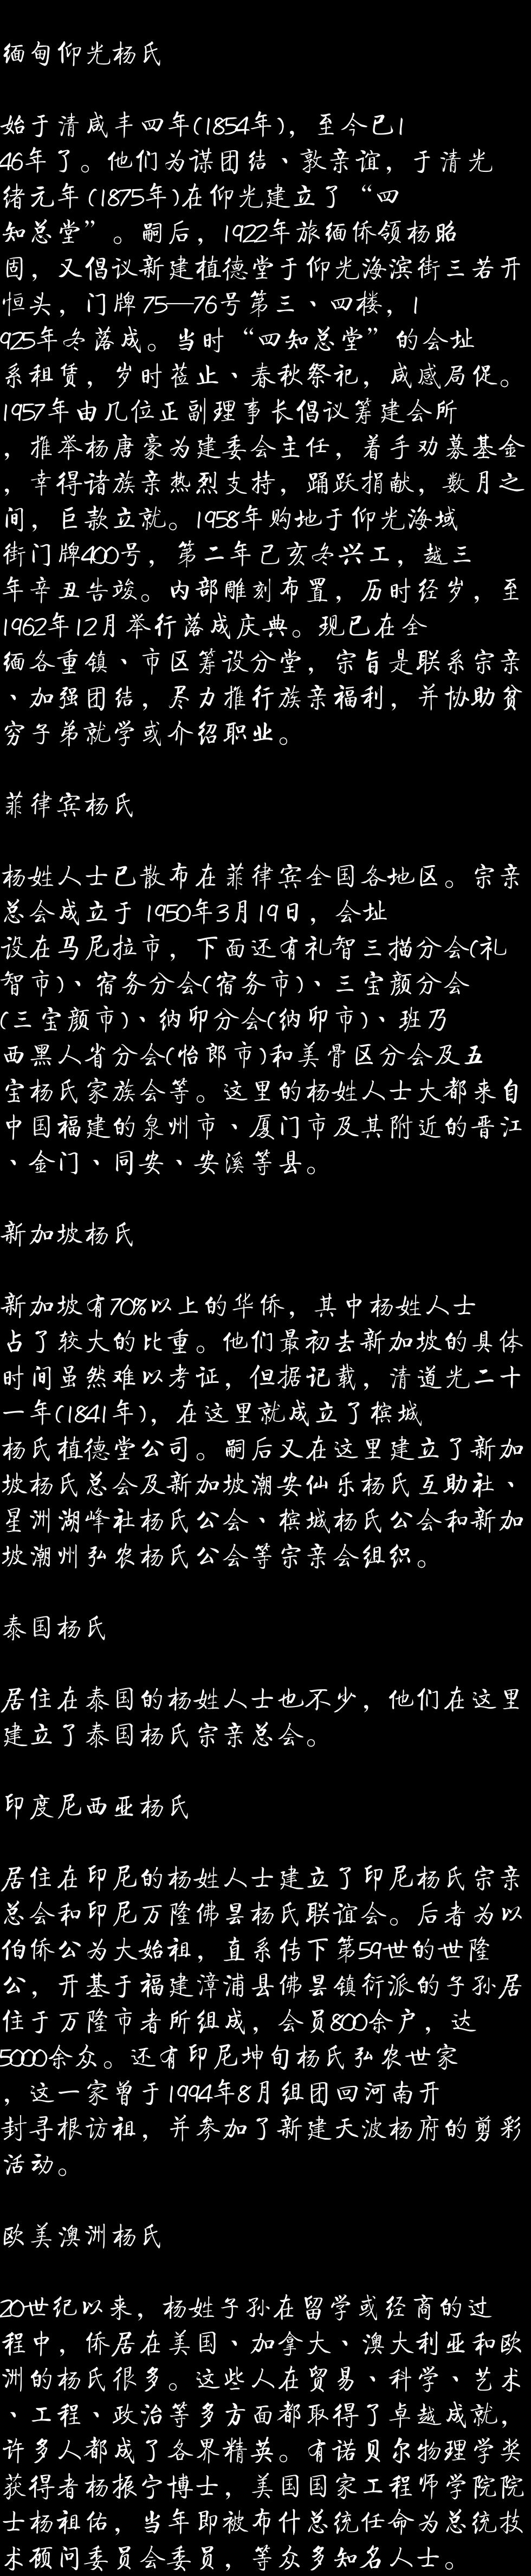 缅甸仰光杨氏
始于清咸丰四年(1854年)，至今已1
46年了。他们为谋团结、敦亲谊，于清光
绪元年(1875年)在仰光建立了“四
知总堂”。嗣后，1922年旅缅侨领杨昭
固，又倡议新建植德堂于仰光海滨街三若开
恒头，门牌75—76号第三、四楼，1
925年冬落成。当时“四知总堂”的会址
系租赁，岁时莅止、春秋祭祀，咸感局促。
1957年由几位正副理事长倡议筹建会所
，推举杨唐豪为建委会主任，着手劝募基金
，幸得诸族亲热烈支持，踊跃捐献，数月之
间，巨款立就。1958年购地于仰光海域
街门牌400号，第二年己亥冬兴工，越三
年辛丑告竣。内部雕刻布置，历时经岁，至
1962年12月举行落成庆典。现已在全
缅各重镇、市区筹设分堂，宗旨是联系宗亲
、加强团结，尽力推行族亲福利，并协助贫
穷子弟就学或介绍职业。
菲律宾杨氏
杨姓人士已散布在菲律宾全国各地区。宗亲
总会成立于1950年3月19日，会址
设在马尼拉市，下面还有礼智三描分会(礼
智市)、宿务分会(宿务市)、三宝颜分会
(三宝颜市)、纳卯分会(纳卯市)、班乃
西黑人省分会(怡郎市)和美骨区分会及五
宝杨氏家族会等。这里的杨姓人士大都来自
中国福建的泉州市、厦门市及其附近的晋江
、金门、同安、安溪等县。
新加坡杨氏
新加坡有70%以上的华侨，其中杨姓人士
占了较大的比重。他们最初去新加坡的具体
时间虽然难以考证，但据记载，清道光二十
一年(1841年)，在这里就成立了槟城
杨氏植德堂公司。嗣后又在这里建立了新加
坡杨氏总会及新加坡潮安仙乐杨氏互助社、
星洲湖峰社杨氏公会、槟城杨氏公会和新加
坡潮州弘农杨氏公会等宗亲会组织。
泰国杨氏
居住在泰国的杨姓人士也不少，他们在这里
建立了泰国杨氏宗亲总会。
印度尼西亚杨氏
居住在印尼的杨姓人士建立了印尼杨氏宗亲
总会和印尼万隆佛昙杨氏联谊会。后者为以
伯侨公为大始祖，直系传下第59世的世隆
公，开基于福建漳浦县佛昙镇衍派的子孙居
住于万隆市者所组成，会员800余户，达
5000余众。还有印尼坤甸杨氏弘农世家
，这一家曾于1994年8月组团回河南开
封寻根访祖，并参加了新建天波杨府的剪彩
活动。
欧美澳洲杨氏
20世纪以来，杨姓子孙在留学或经商的过
程中，侨居在美国、加拿大、澳大利亚和欧
洲的杨氏很多。这些人在贸易、科学、艺术
、工程、政治等多方面都取得了卓越成就，
许多人都成了各界精英。有诺贝尔物理学奖
获得者杨振宁博士，美国国家工程师学院院
士杨祖佑，当年即被布什总统任命为总统技
术顾问委员会委员，等众多知名人士。